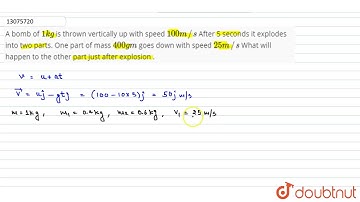 13075720
A bomb of 1kg is thrown vertically up with speed 100m/s After 5 seconds it explodes
into two parts. One part of mass 400gm goes down with speed 25m/s What will
happen to the other part just after explosion .
v = u + at
V⃗ = uĵ - gtĵ = (100 - 10×5)ĵ = 50ĵ m/s
m = 1kg, m₁ = 0.4kg, m₂ = 0.6kg, V₁ = 25 m/s
doubtnut